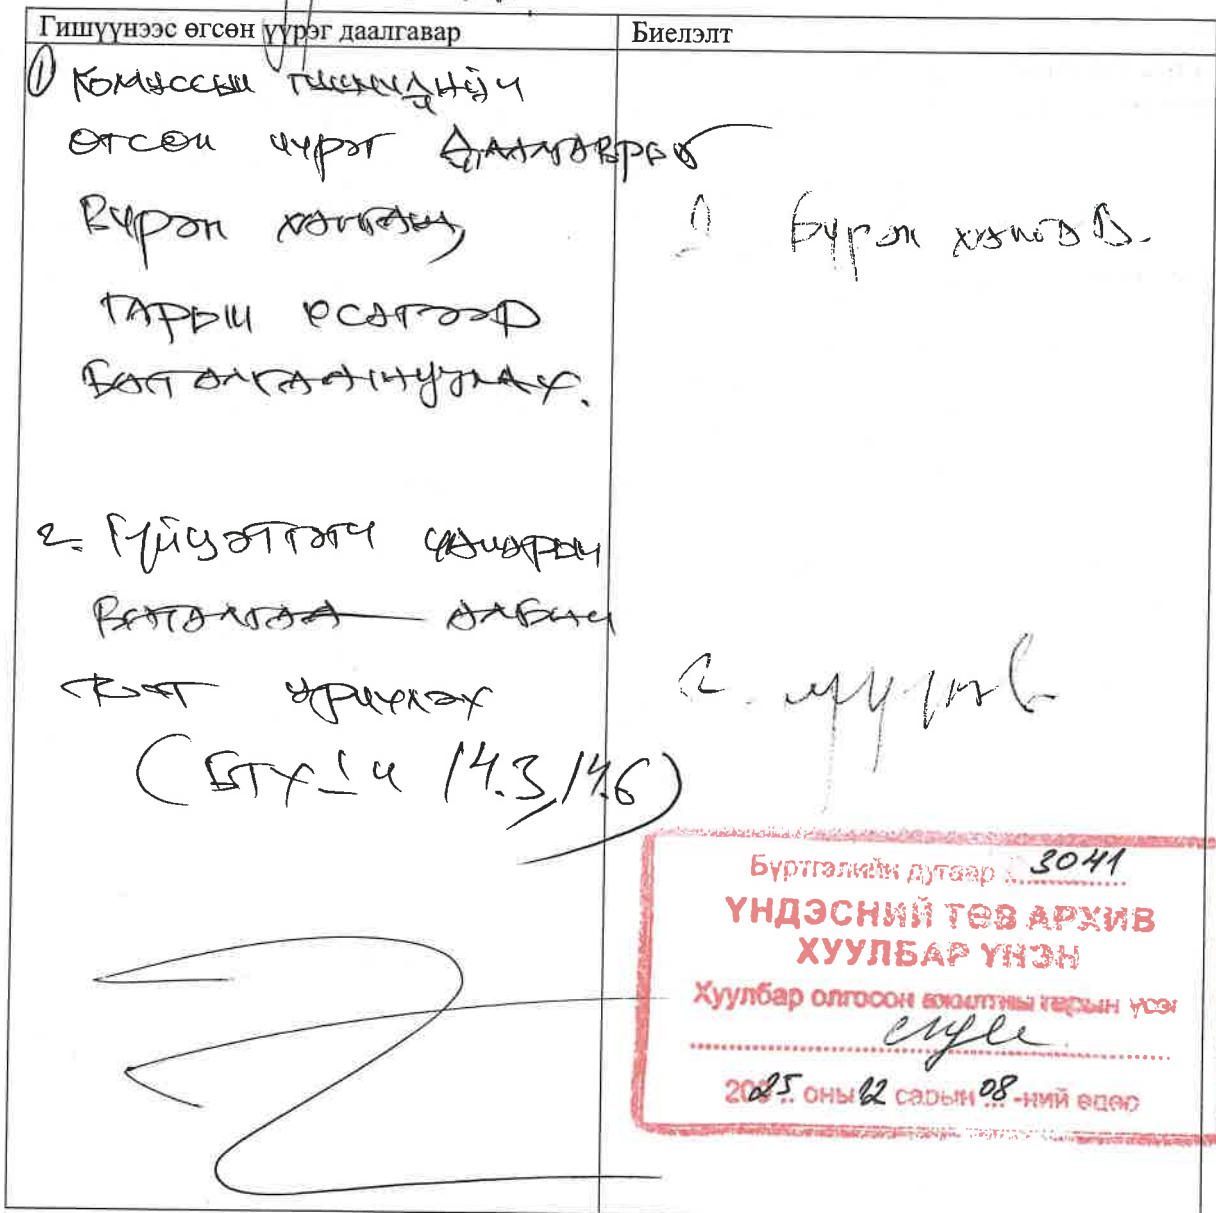 Гишүүнээс өгсөн үүрэг даалгавар
Биелэлт
① Комуссын гишүүдийн
өгсөн үүрэг даалгаврыг
Бүрэн хангаж,
гарын үсэгээр
Баталгаажуулах.
1 Бүрэн хангав.
2. Гүйцэтгэгч
Баталгаа албан
ёсоор
(БТХ-ий 14.3, 14.6)
2.
Бүртгэлийн дугаар 3041
ҮНДЭСНИЙ ТӨВ АРХИВ
ХУУЛБАР ҮНЭН
Хуулбар олгосон ажилтны гарын үсэг
2025 оны 12 сарын 08-ний өдөр